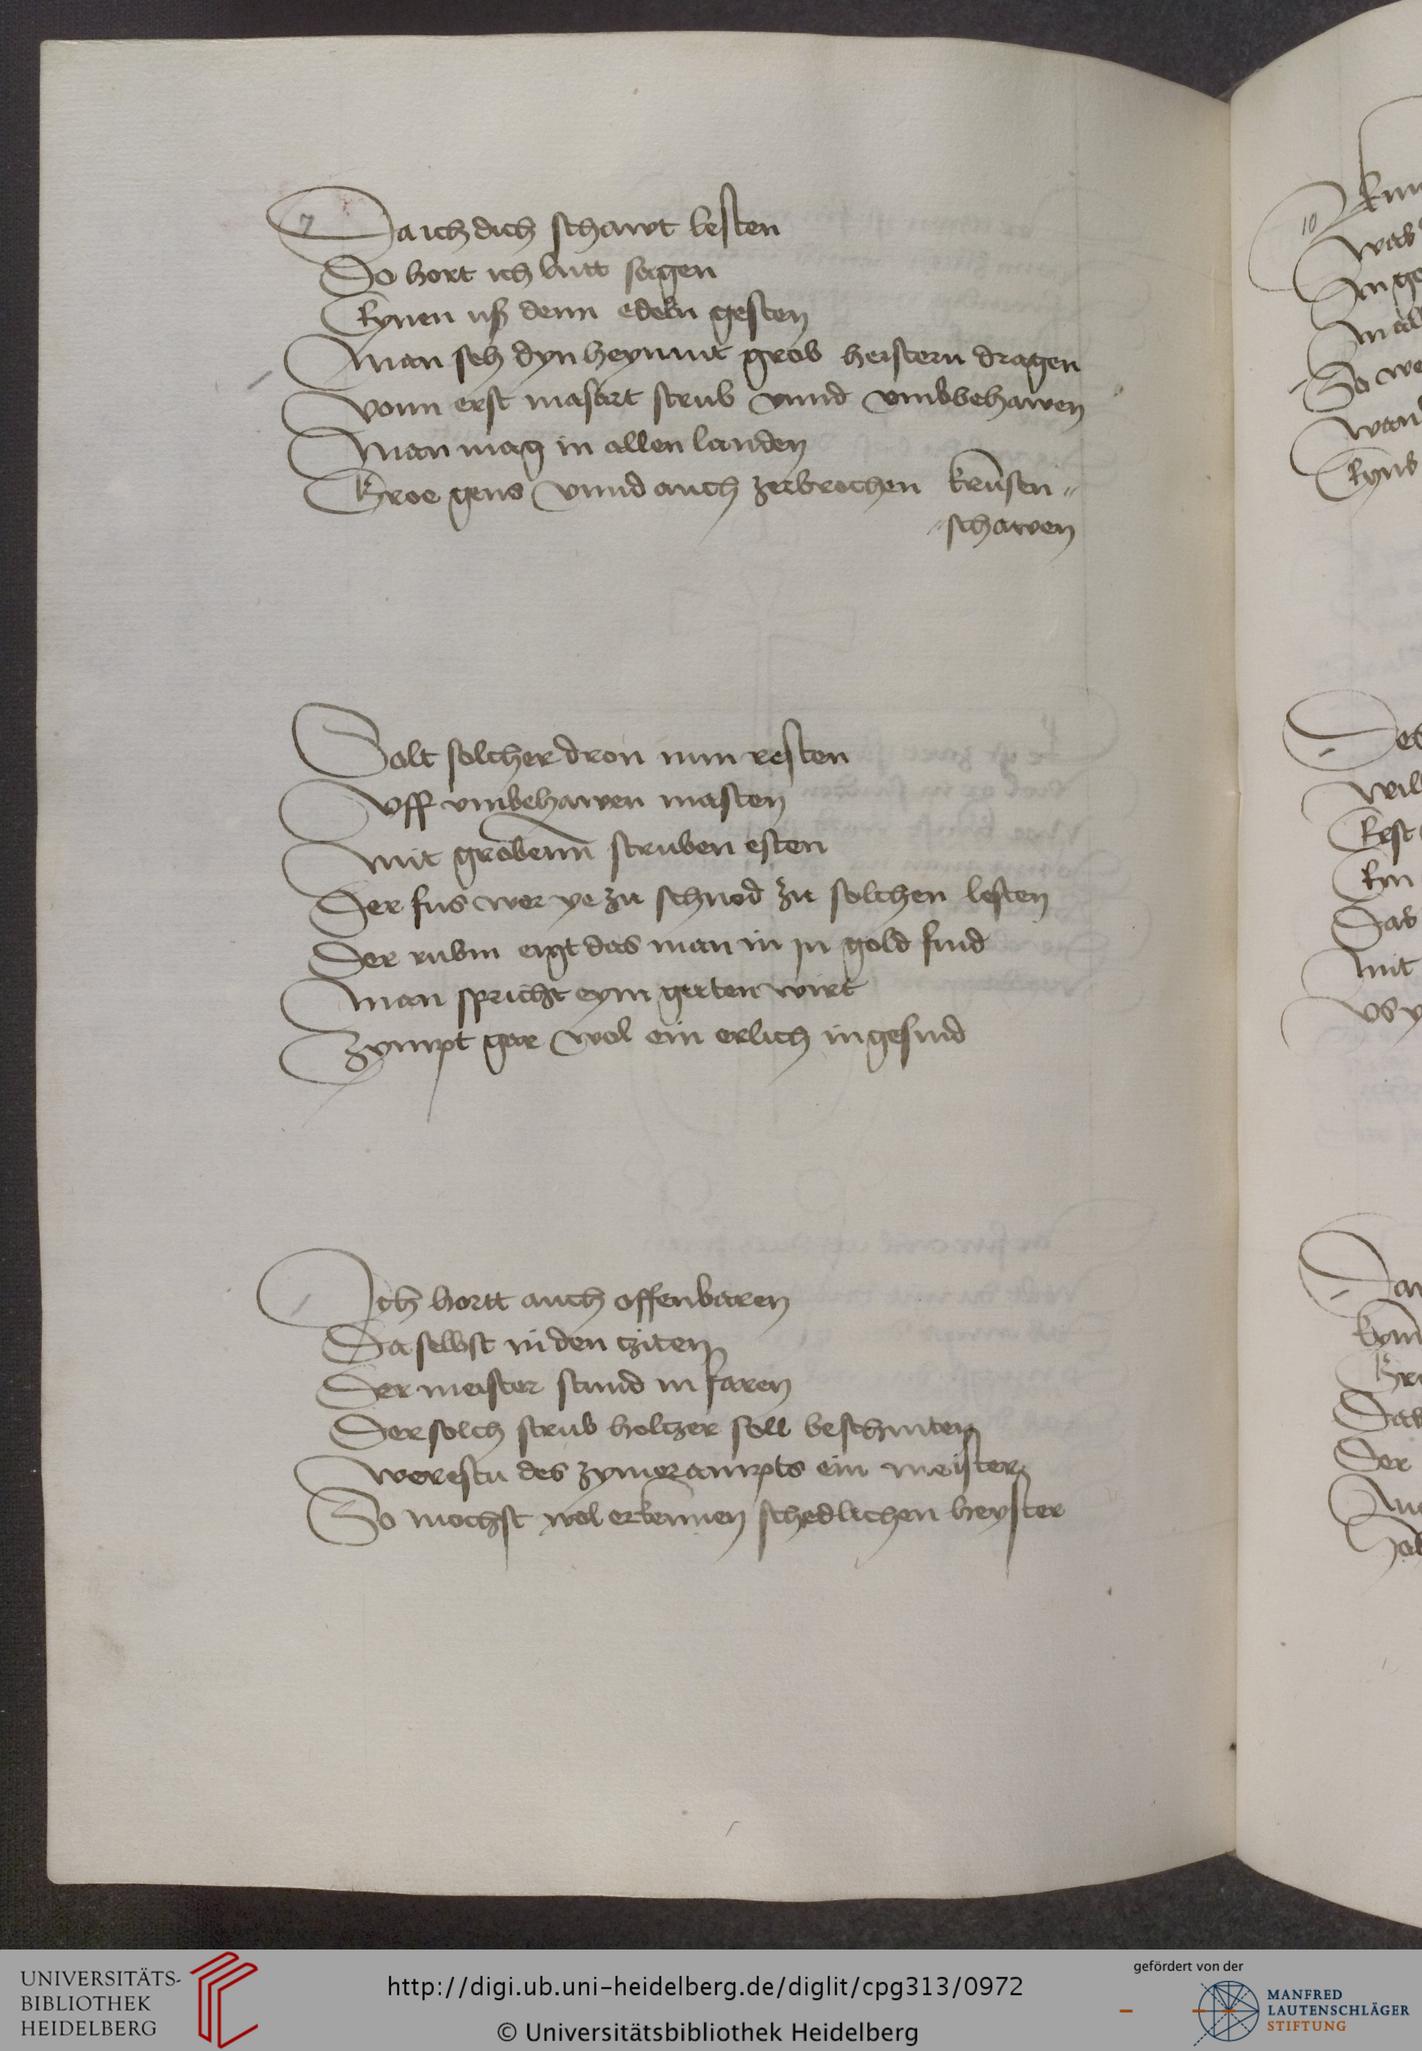 7 Da ich dich schawt lesten
Do hort ich lutt sagen
Eynen uß denn edeln gesten
Man seh dyn heymut grob heistern dragen
Vonn erst masart strub vnnd vmbbehawen
Man mag in allen landen
Groe gens vnnd auch zerbrochen krusen
schawen
Solt solcher dron nun resten
Vff vmbehawen masten
Mit grobenn struben esten
Der fus wer ye zu schnod zu solchen lesten
Der rubin eigt das man in in gold find
Man spricht eym gerten wirt
Zympt gar wol ein erlich ingesind
Ich hortt auch offenbaren
Da selbst in den cziten
Der meister stund in faren
Der solch strub holtzer soll beschniten
Werestu des zymerampts ein meister
So mochst wol erkennen schedlichen heyster
10
UNIVERSITÄTS-
BIBLIOTHEK
HEIDELBERG
http://digi.ub.uni-heidelberg.de/diglit/cpg313/0972
© Universitätsbibliothek Heidelberg
gefördert von der
MANFRED
LAUTENSCHLÄGER
STIFTUNG